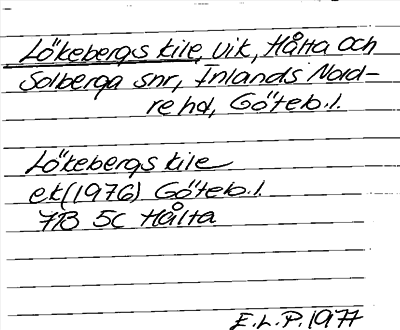 Lökebergs kile, vik, Hålta och
Solberga snr, Inlands Nord-
re hd, Göteb. l.
Lökebergs kile
ek (1976) Göteb. l.
7B 5C Hålta
E.L.P. 1977